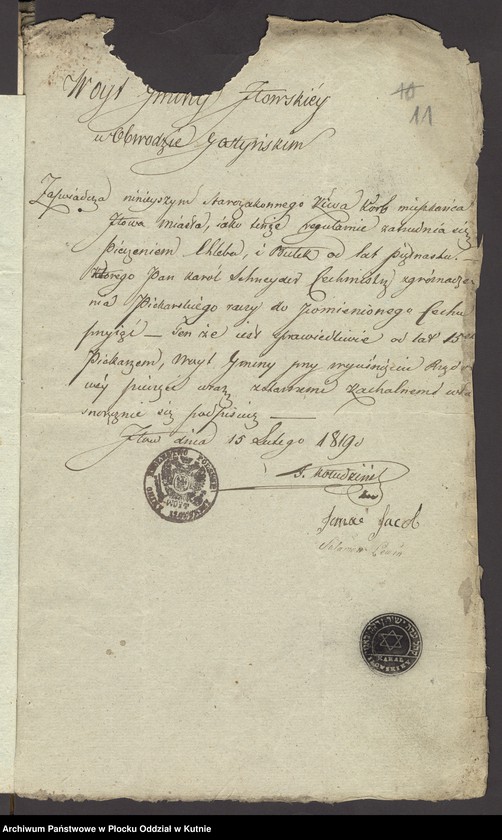 10
11
Woyt Gminy Iłowskiey
w Obwodzie Gostyńskim
Zaświadcza ninieyszym Starozakonnego Kiwa Korb mieszkańca
Iłowa miasta, iako tenże regularnie zatrudnia się
Pieczeniem Chleba, i Bułek od lat Piętnastu.
którego Pan Karól Schneyder Cechmistrz zgromadze
nia Piekarskiego raczy do pomienionego Cechu
przyiąć — Ten że iest sprawiedliwie od lat 15
Piekarzem, Woyt Gminy przy wyciśnięciu Rządo
wey pieczęci wraz z Kachalnemi wła
snoręcznie się podpisuią
Iłow dnia 15 Lutego 1819
Jacob
KAHAL
Archiwum Państwowe w Płocku Oddział w Kutnie